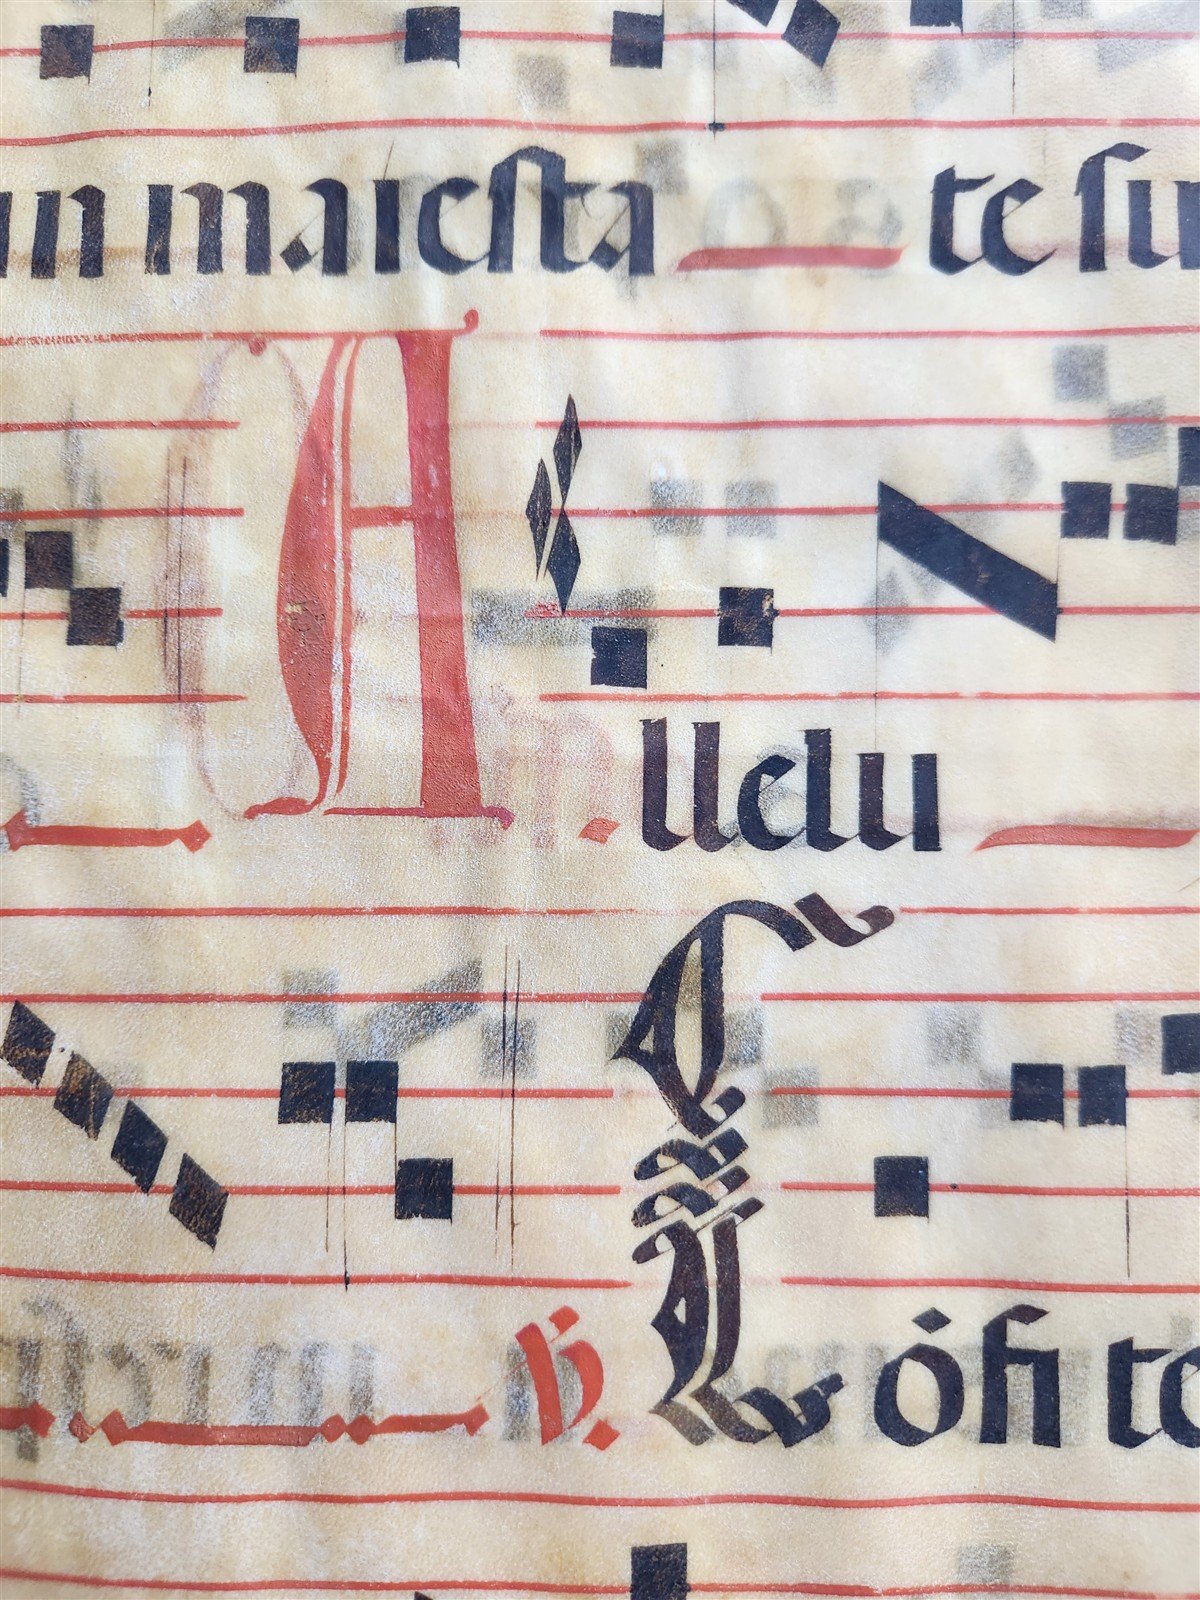 in maiesta te su
Allelu
℣. Cófite